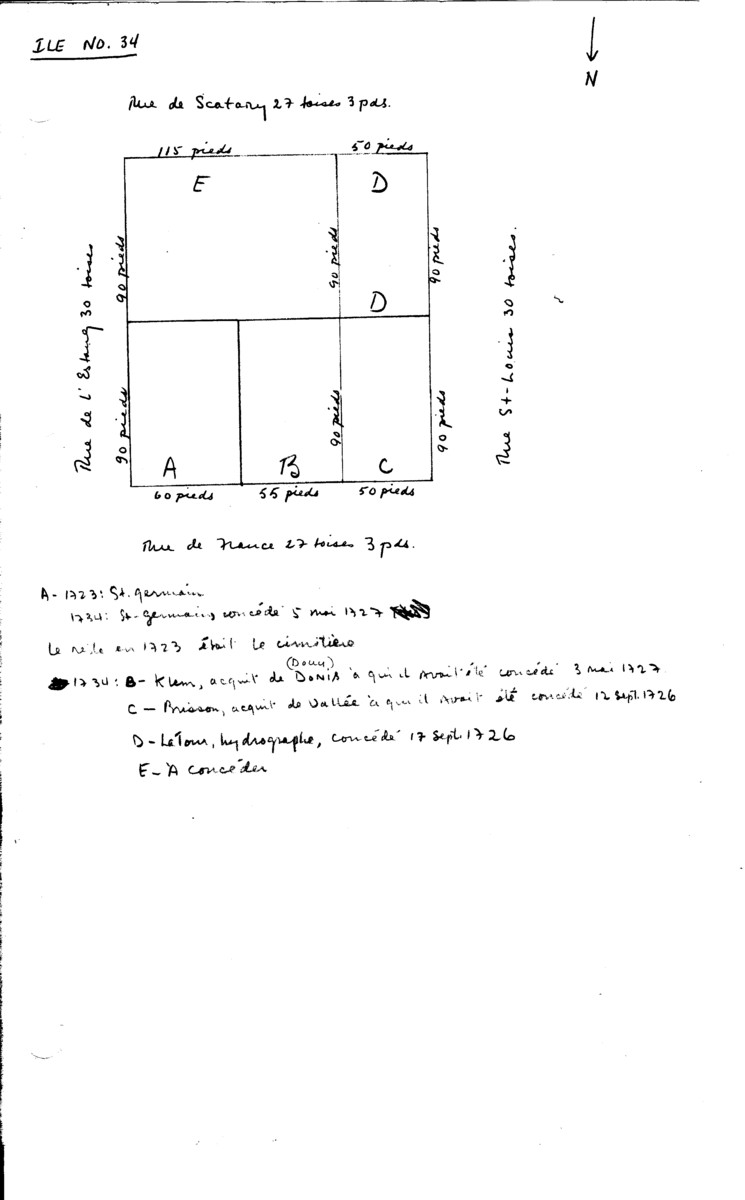 ILE NO. 34
N
Rue de Scatary 27 toises 3 pds.
115 pieds 50 pieds
E D
90 pieds 90 pieds 90 pieds
Rue de l'Estang 30 toises
Rue St-Louis 30 toises.
D
90 pieds 90 pieds 90 pieds
A B C
60 pieds 55 pieds 50 pieds
Rue de France 27 toises 3 pds.
A - 1723: St. Germain
1734: St-Germain, concédé 5 mai 1727
Le reste en 1723 était le cimitière
(Douy)
1734: B - Klem, acquit de DONIS à qui il avait été concédé 3 mai 1727
C - Brisson, acquit de Vallée à qui il avait été concédé 12 Sept. 1726
D - LeTour, hydrographe, concédé 17 Sept. 1726
E - A concéder